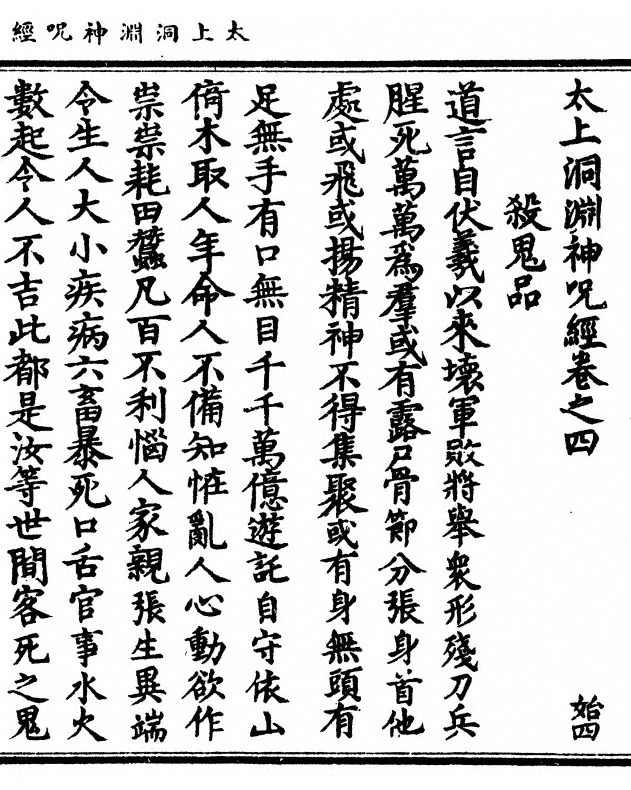 太上洞淵神呪經
太上洞淵神呪經卷之四
始四
殺鬼品
道言自伏羲以來壞軍敗將舉衆形殘刀兵
腥死萬萬爲羣或有露尸骨節分張身首他
處或飛或揚精神不得集聚或有身無頭有
足無手有口無目千千萬億遊託自守依山
倚木取人年命人不備知恠亂人心動欲作
祟祟耗田蠶凡百不利惱人家親張生異端
令生人大小疾病六畜暴死口舌官事水火
數起令人不吉此都是汝等世間客死之鬼